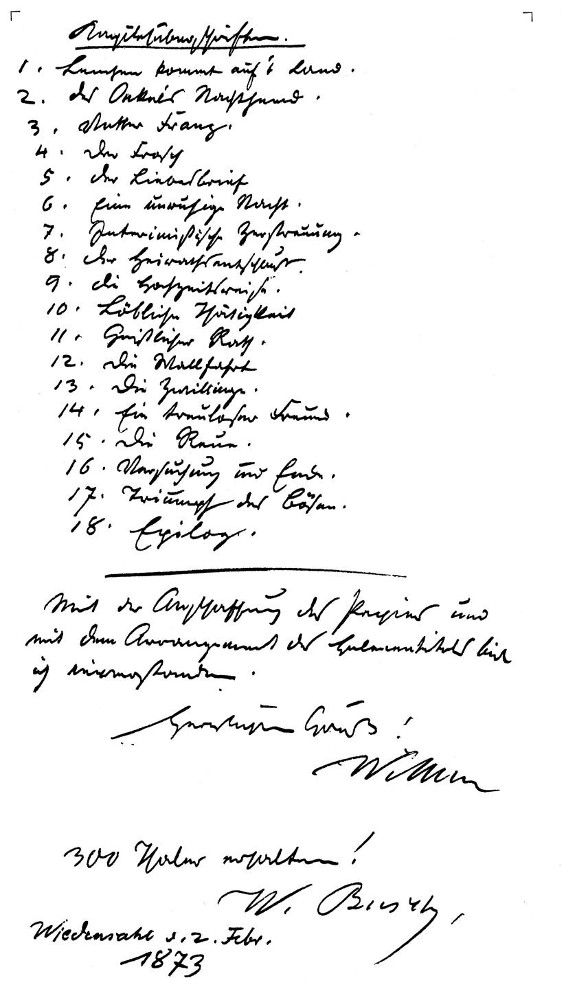 Kapitelüberschriften.
1. Lenchen kommt auf's Land.
2. Des Onkels Nachthemd.
3. Vetter Franz.
4. Der Frosch
5. Der Liebesbrief
6. Eine unruhige Nacht.
7. Interimistische Zerstreuung.
8. Der Heirathsentschluß.
9. Die Hochzeitsreise.
10. Löbliche Thätigkeit
11. Geistlicher Rath.
12. Die Wallfahrt
13. Die Zwillinge.
14. Ein treuloser Freund.
15. Die Reue.
16. Versuchung und Ende.
17. Triumpf des Bösen.
18. Epilog.
Mit der Anschaffung des Papiers und
mit dem Arrangement des Helenentitels bin
ich einverstanden.
Herzlichen Gruß!
Wilhelm
300 Thaler erhalten!
W. Busch,
Wiedensahl d. 2. Febr.
1873